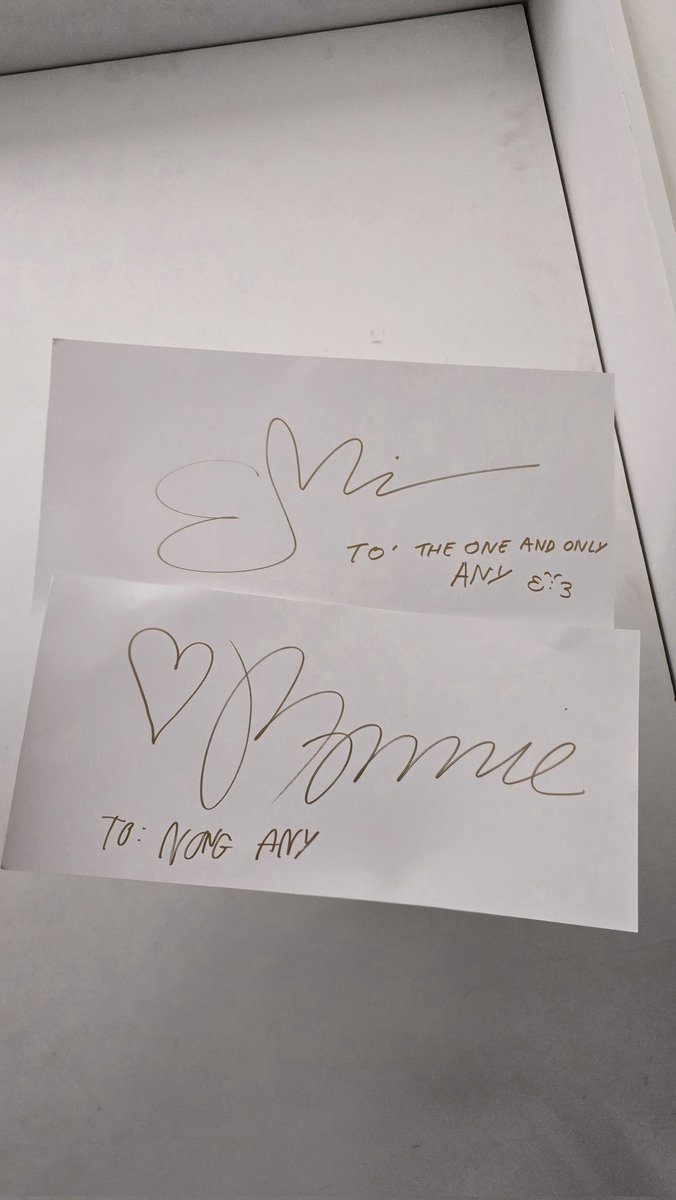 Emi
TO: THE ONE AND ONLY
ANY
Bonnie
TO: NONG ANY